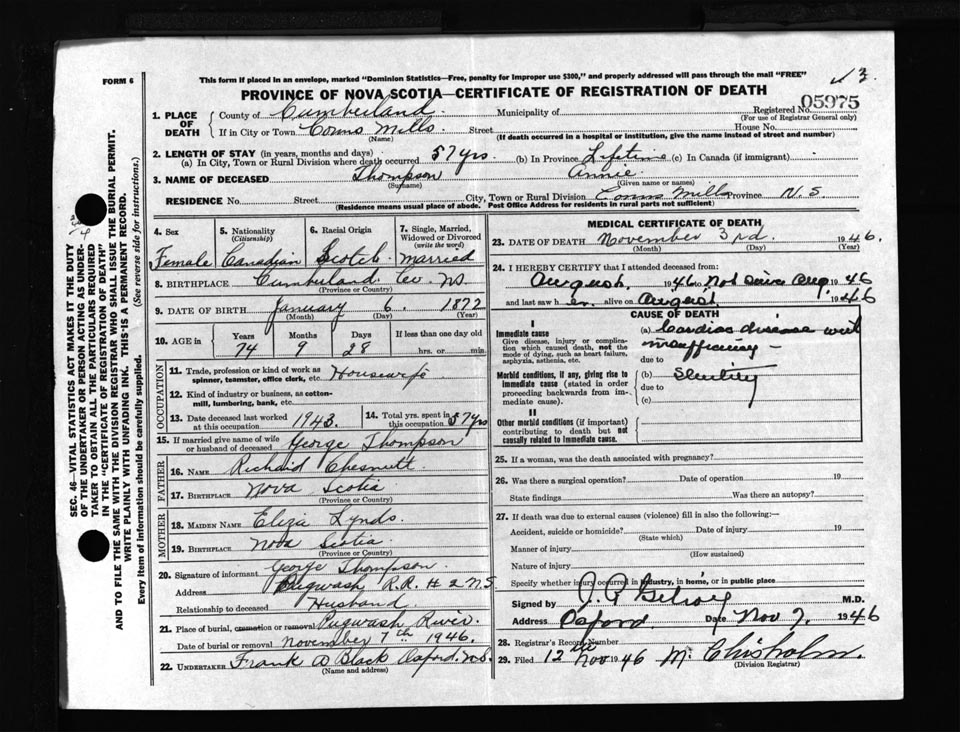 ✓ 3.
FORM 6
This form if placed in an envelope, marked "Dominion Statistics—Free, penalty for improper use $300," and properly addressed will pass through the mail "FREE"
PROVINCE OF NOVA SCOTIA—CERTIFICATE OF REGISTRATION OF DEATH
1. PLACE OF DEATH County of Cumberland. Municipality of Registered No. 05975
(For use of Registrar General only)
If in City or Town Conns Mills. Street House No.
(Name) (If death occurred in a hospital or institution, give the name instead of street and number)
2. LENGTH OF STAY (in years, months and days)
(a) In City, Town or Rural Division where death occurred 57 yrs. (b) In Province Lifetime (c) In Canada (if immigrant)
3. NAME OF DECEASED Thompson Annie
(Surname) (Given name or names)
RESIDENCE No. Street City, Town or Rural Division Conns Mills Province N.S
(Residence means usual place of abode. Post Office Address for residents in rural parts not sufficient)
4. Sex 5. Nationality (Citizenship) 6. Racial Origin 7. Single, Married, Widowed or Divorced (write the word)
Female Canadian Scotch married
8. BIRTHPLACE Cumberland Co. N.S.
(Province or Country)
9. DATE OF BIRTH January 6. 1872
(Month) (Day) (Year)
10. AGE in Years Months Days If less than one day old
74 9 28 hrs. or min.
OCCUPATION
11. Trade, profession or kind of work as spinner, teamster, office clerk, etc. Housewife
12. Kind of industry or business, as cotton-mill, lumbering, bank, etc.
13. Date deceased last worked at this occupation 1943. 14. Total yrs. spent in this occupation 57 yrs
15. If married give name of wife or husband of deceased George Thompson
FATHER
16. NAME Richard Chesnutt.
17. BIRTHPLACE Nova Scotia
(Province or Country)
MOTHER
18. MAIDEN NAME Eliza Lynds.
19. BIRTHPLACE Nova Scotia.
(Province or Country)
20. Signature of informant George Thompson.
Address Pugwash R.R. # 2 N.S
Relationship to deceased Husband.
21. Place of burial, cremation or removal Pugwash River.
Date of burial or removal November 7th 1946.
22. UNDERTAKER Frank D Black Oxford. N.S.
(Name and address)
MEDICAL CERTIFICATE OF DEATH
23. DATE OF DEATH November 3rd. 1946.
(Month) (Day) (Year)
24. I HEREBY CERTIFY that I attended deceased from:
August. 1946 to not since Aug. 1946
and last saw h er alive on August. 1946
CAUSE OF DEATH
I
Immediate cause
Give disease, injury or complication which caused death, not the mode of dying, such as heart failure, asphyxia, asthenia, etc.
(a) Cardiac disease with
insufficiency —
due to
Morbid conditions, if any, giving rise to immediate cause (stated in order proceeding backwards from immediate cause).
(b) Senility
due to
(c)
II
Other morbid conditions (if important) contributing to death but not causally related to immediate cause.
25. If a woman, was the death associated with pregnancy?
26. Was there a surgical operation? Date of operation 19
State findings Was there an autopsy?
27. If death was due to external causes (violence) fill in also the following:—
Accident, suicide or homicide? Date of injury 19
(State which)
Manner of injury
(How sustained)
Nature of injury
Specify whether injury occurred in industry, in home, or in public place
Signed by M.D.
Address Oxford. Date Nov 7. 1946
28. Registrar's Record Number
29. Filed 12th Nov 1946 M. Chisholm.
(Division Registrar)
SEC. 46—VITAL STATISTICS ACT MAKES IT THE DUTY
OF THE UNDERTAKER OR PERSON ACTING AS UNDER-
TAKER TO OBTAIN ALL THE PARTICULARS REQUIRED
IN THE "CERTIFICATE OF REGISTRATION OF DEATH"
AND TO FILE THE SAME WITH THE DIVISION REGISTRAR WHO SHALL ISSUE THE BURIAL PERMIT.
WRITE PLAINLY WITH UNFADING INK. THIS IS A PERMANENT RECORD.
Every item of information should be carefully supplied. (See reverse side for instructions.)